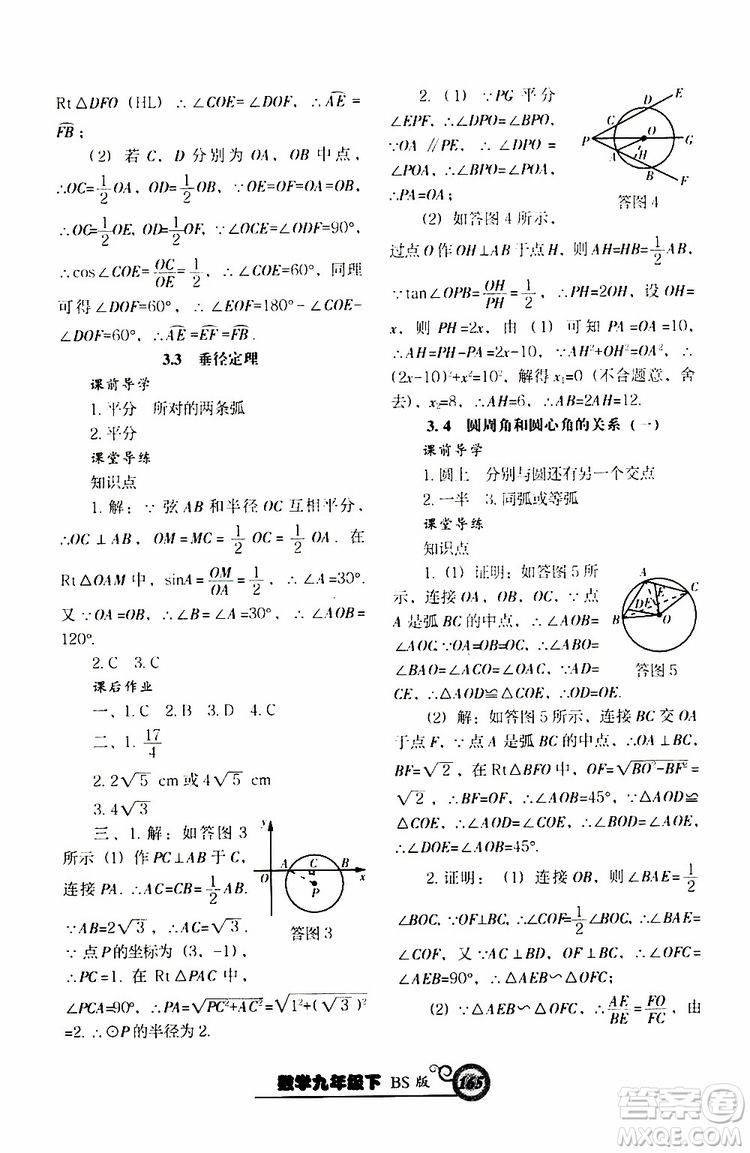 Rt△DFO (HL) ∴∠COE=∠DOF, ∴A͡E=
F͡B;
(2) 若 C, D 分别为 OA, OB 中点,
∴OC=1/2 OA, OD=1/2 OB, ∵OE=OF=OA=OB,
∴OC=1/2 OE, OD=1/2 OF, ∵∠OCE=∠ODF=90°,
∴cos∠COE=OC/OE=1/2, ∴∠COE=60°, 同理
可得∠DOF=60°, ∴∠EOF=180°-∠COE-
∠DOF=60°, ∴A͡E=E͡F=F͡B.
3.3 垂径定理
课前导学
1.平分 所对的两条弧
2.平分
课堂导练
知识点
1.解:∵弦AB和半径OC互相平分,
∴OC⊥AB, OM=MC=1/2 OC=1/2 OA. 在
Rt△OAM中, sinA=OM/OA=1/2, ∴∠A=30°.
又∵OA=OB, ∴∠B=∠A=30°, ∴∠AOB=
120°.
2.C 3.C
课后作业
一、1.C 2.B 3.D 4.C
二、1.17/4
2.2√5 cm或4√5 cm
3.4√3
三、1.解:如答图3
所示 (1) 作PC⊥AB于C,
连接PA. ∴AC=CB=1/2 AB,
∵AB=2√3, ∴AC=√3,
∵点P的坐标为(3, -1),
∴PC=1. 在Rt△PAC中,
∠PCA=90°, ∴PA=√(PC²+AC²)=√(1²+(√3)²)
=2. ∴⊙P的半径为2.
y
O A C B x
P
答图3
2. (1) ∵PG平分
∠EPF, ∴∠DPO=∠BPO,
∵OA∥PE, ∴∠DPO=
∠POA, ∴∠BPO=∠POA,
∴PA=OA;
(2) 如答图4所示,
过点O作OH⊥AB于点H, 则AH=HB=1/2 AB,
∵tan∠OPB=OH/PH=1/2, ∴PH=2OH, 设OH=
x, 则PH=2x, 由(1)可知PA=OA=10,
∴AH=PH-PA=2x-10, ∵AH²+OH²=OA², ∴
(2x-10)²+x²=10², 解得x₁=0 (不合题意, 舍
去), x₂=8, ∴AH=6, ∴AB=2AH=12.
D E
C
P O G
A H
B F
答图4
3.4 圆周角和圆心角的关系(一)
课前导学
1.圆上 分别与圆还有另一个交点
2.一半 3.同弧或等弧
课堂导练
知识点
1. (1) 证明:如答图5所
示, 连接OA, OB, OC, ∵点
A是弧BC的中点, ∴∠AOB=
∠AOC, ∵OA=OB=OC, ∴∠ABO=
∠BAO=∠ACO=∠OAC, ∵AD=
CE, ∴△AOD≌△COE, ∴OD=OE.
A
C
D E F
B O
答图5
(2) 解:如答图5所示, 连接BC交OA
于点F, ∵点A是弧BC的中点, ∴OA⊥BC,
BF=√2, ∴在Rt△BFO中, OF=√(BO²-BF²)=
√2, ∴BF=OF, ∴∠AOB=45°, ∵△AOD≌
△COE, ∴∠AOD=∠COE, ∴∠DOE=∠AOC,
∵∠AOC=∠AOB, ∴∠DOE=∠AOB=45°.
2.证明: (1) 连接OB, 则∠BAE=1/2
∠BOC, ∵OF⊥BC, ∴∠COF=1/2∠BOC, ∴∠BAE=
∠COF, 又∵AC⊥BD, OF⊥BC, ∴∠OFC=
∠AEB=90°, ∴△AEB∽△OFC;
(2) ∵△AEB∽△OFC, ∴AE/BE=FO/FC, 由
数学九年级下 BS版 165
答案圈
MXQE.COM